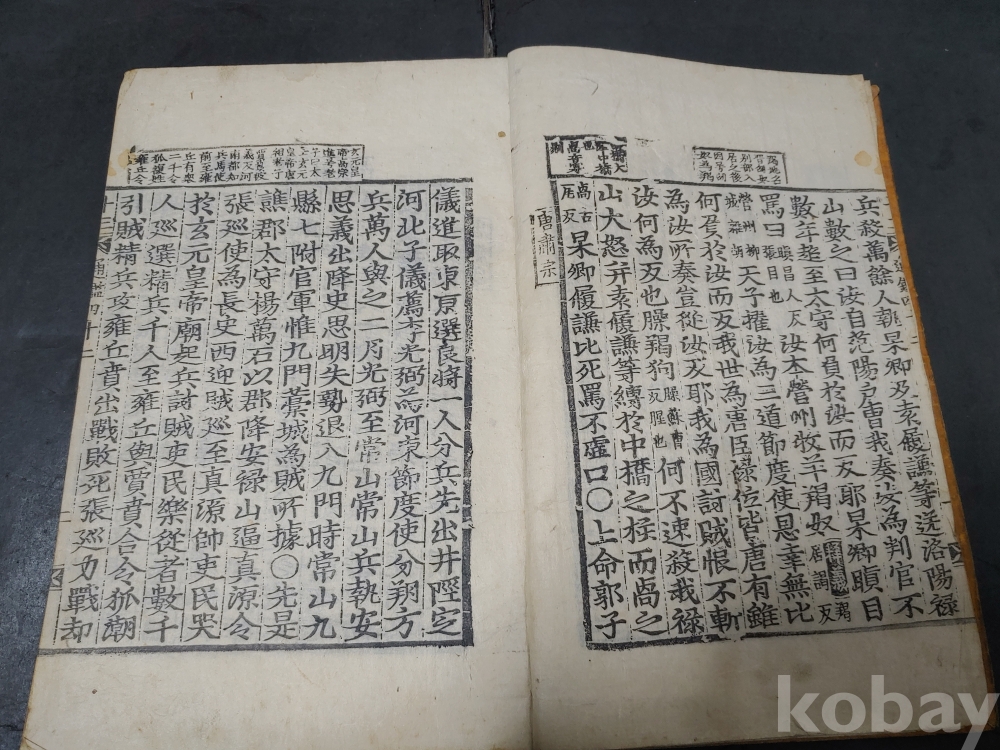 兵殺萬餘人執杲卿及袁履謙等送洛陽祿
山數之曰汝自范陽戶曹我奏汝為判官不
數年超至太守何負於汝而反耶杲卿瞋目
罵曰瞋昌人反張目也汝本營州牧羊羯奴居謁反
營州柳城雜胡天子擢汝為三道節度使恩幸無比
何負於汝而反我世為唐臣祿位皆唐有雖
為汝所奏豈從汝反耶我為國討賊恨不斬
汝何為反也臊羯狗臊蘇曹反腥也何不速殺我祿
山大怒并袁履謙等縛於中橋之柱而咼之
咼古瓦反杲卿履謙比死罵不虛口〇上命郭子
唐肅宗
儀進取東京選良將一人分兵先出井陘定
河北子儀薦李光弼為河東節度使分朔方
兵萬人與之二月光弼至常山常山兵執安
思義出降史思明失勢退入九門時常山九
縣七附官軍惟九門藁城為賊所據〇先是
譙郡太守楊萬石以郡降安祿山逼真源令
張巡使為長史西迎賊巡至真源帥吏民哭
於玄元皇帝廟起兵討賊吏民樂從者數千
人巡選精兵千人至雍丘與賈賁合令狐潮
引賊精兵攻雍丘賁出戰敗死張巡力戰却
kobay